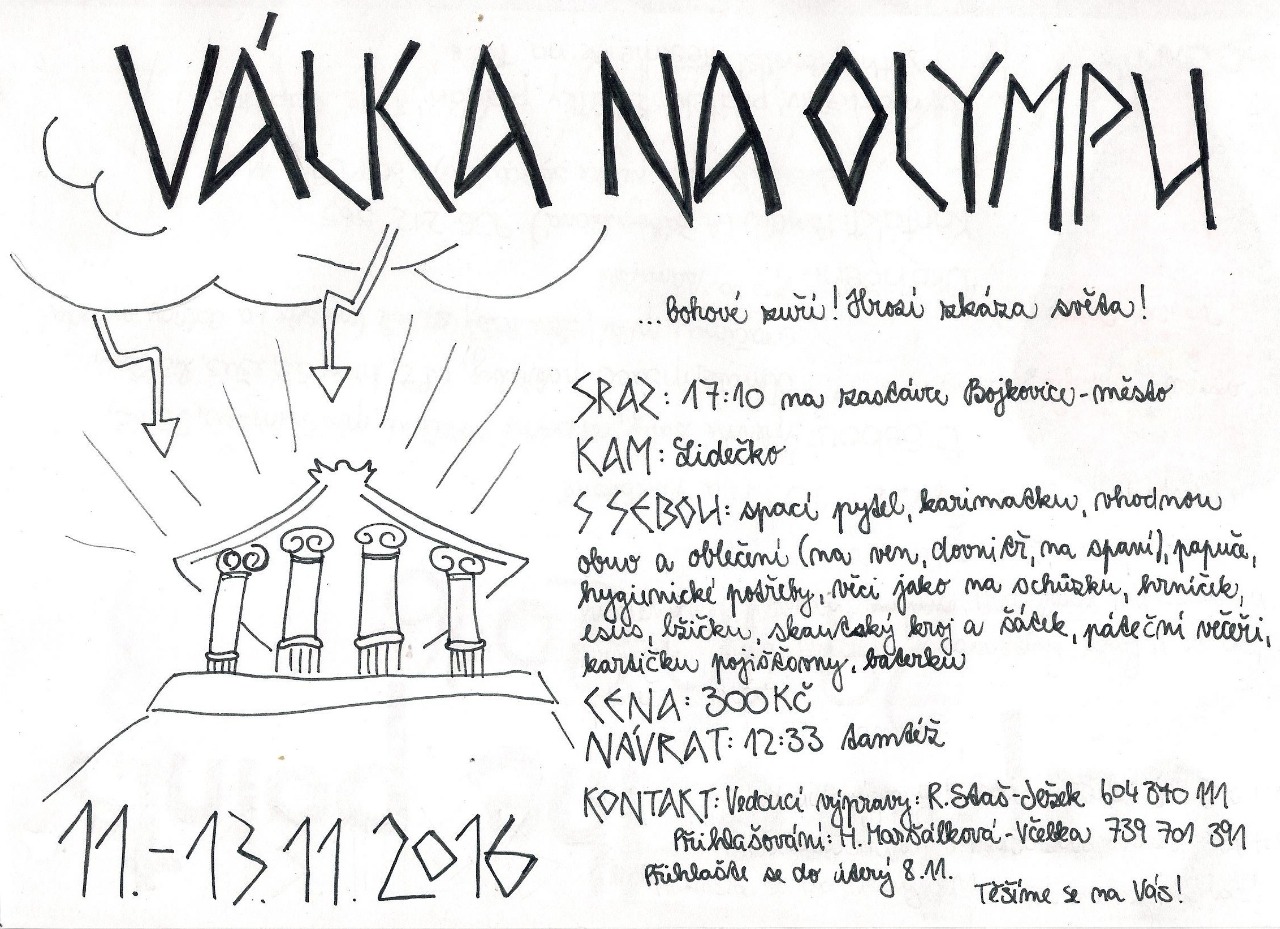 VÁLKA NA OLYMPU
...bohové zuří! Hrozí zkáza světa!
SRAZ: 17:10 na zastávce Bojkovice-město
KAM: Lidečko
S SEBOU: spací pytel, karimatku, vhodnou
obuv a oblečení (na ven, dovnitř, na spaní), papuče,
hygienické potřeby, věci jako na schůzku, hrníček,
esus, lžičku, skautský kroj a šátek, páteční večeři,
kartičku pojišťovny, baterku
CENA: 300Kč
NÁVRAT: 12:33 tamtéž
KONTAKT: Vedoucí výpravy: R. Staš-Ježek 604 870 111
Přihlašování: M. Maršálková-Včelka 739 701 391
Přihlašte se do úterý 8.11.
Těšíme se na Vás!
11.-13.11.2016